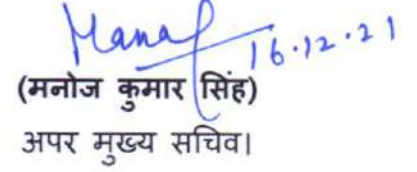 Manoj 16.12.21
(मनोज कुमार सिंह)
अपर मुख्य सचिव।